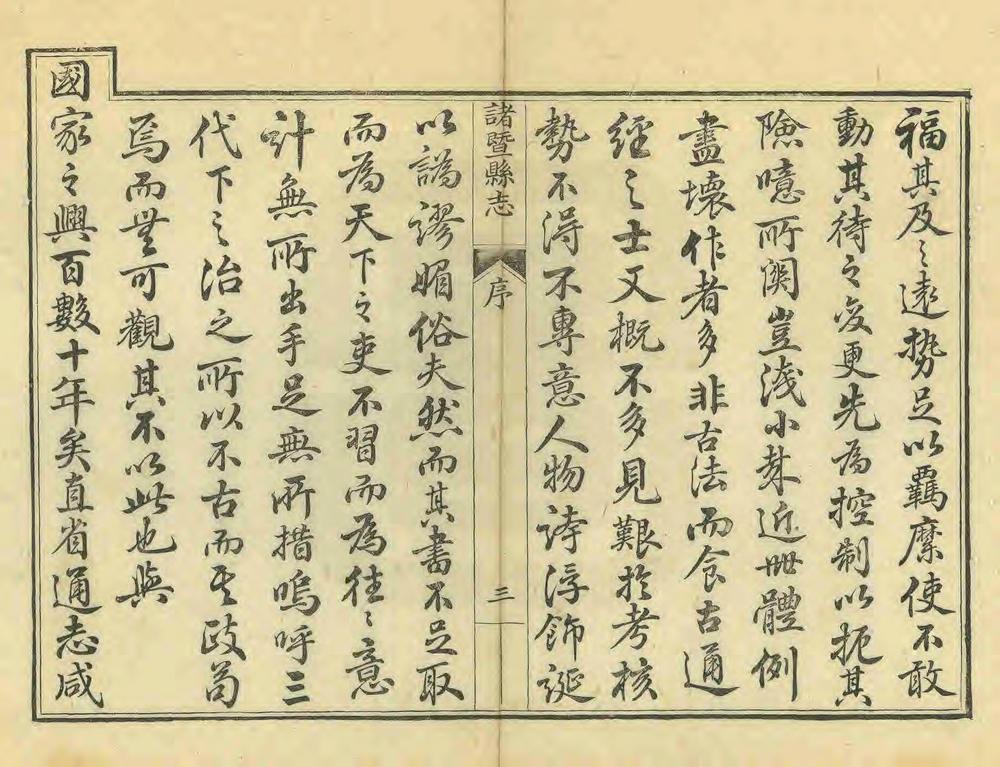 福其及之遠勢足以羈縻使不敢
動其待之反更先為控制以扼其
險噫所關豈淺小哉近世體例
盡壞作者多非古法而食古通
經之士又概不多見艱於考核
勢不得不專意人物誇浮飾誕
諸暨縣志
序
三
以譌謬媚俗夫然而其書不足取
而為天下之吏不習而為往々意
計無所出手足無所措嗚呼三
代下之治之所以不古而其政苟
焉而無可觀其不以此也與
國家之興百數十年矣直省通志咸